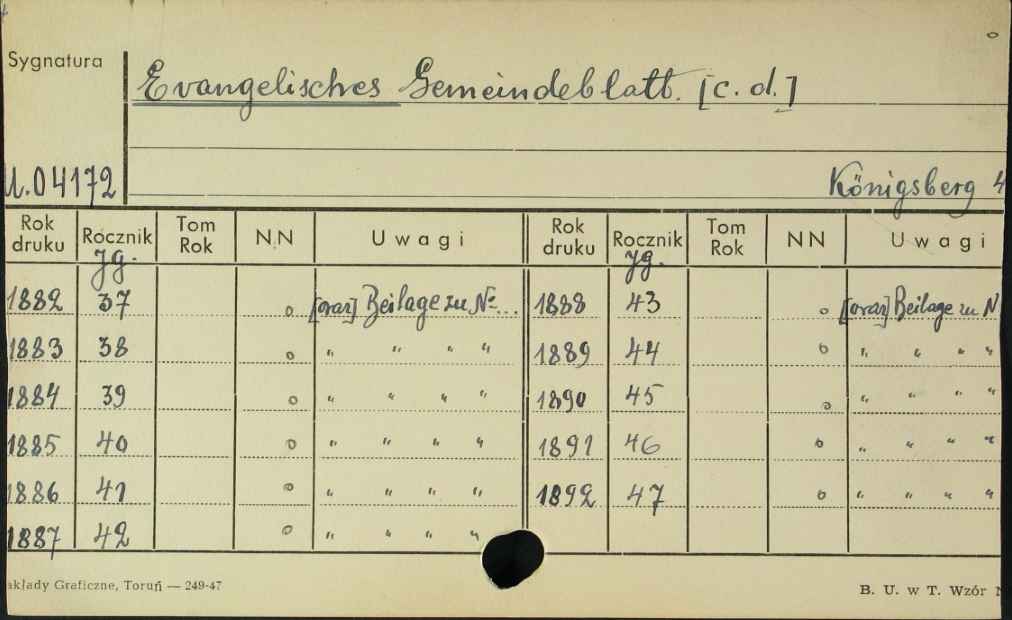 Sygnatura
Evangelisches Gemeindeblatt. [c. d.]
U.04172
Königsberg 4
Rok druku Rocznik Jg. Tom Rok NN Uwagi Rok druku Rocznik Jg. Tom Rok NN Uwagi
1882 37 o [oraz] Beilage zu Nº... 1888 43 o [oraz] Beilage zu N
1883 38 o " " " " 1889 44 o " " " "
1884 39 o " " " " 1890 45 o " " " "
1885 40 o " " " " 1891 46 o " " " "
1886 41 o " " " " 1892 47 o " " " "
1887 42 o " " " "
akłady Graficzne, Toruń — 249-47
B. U. w T. Wzór N